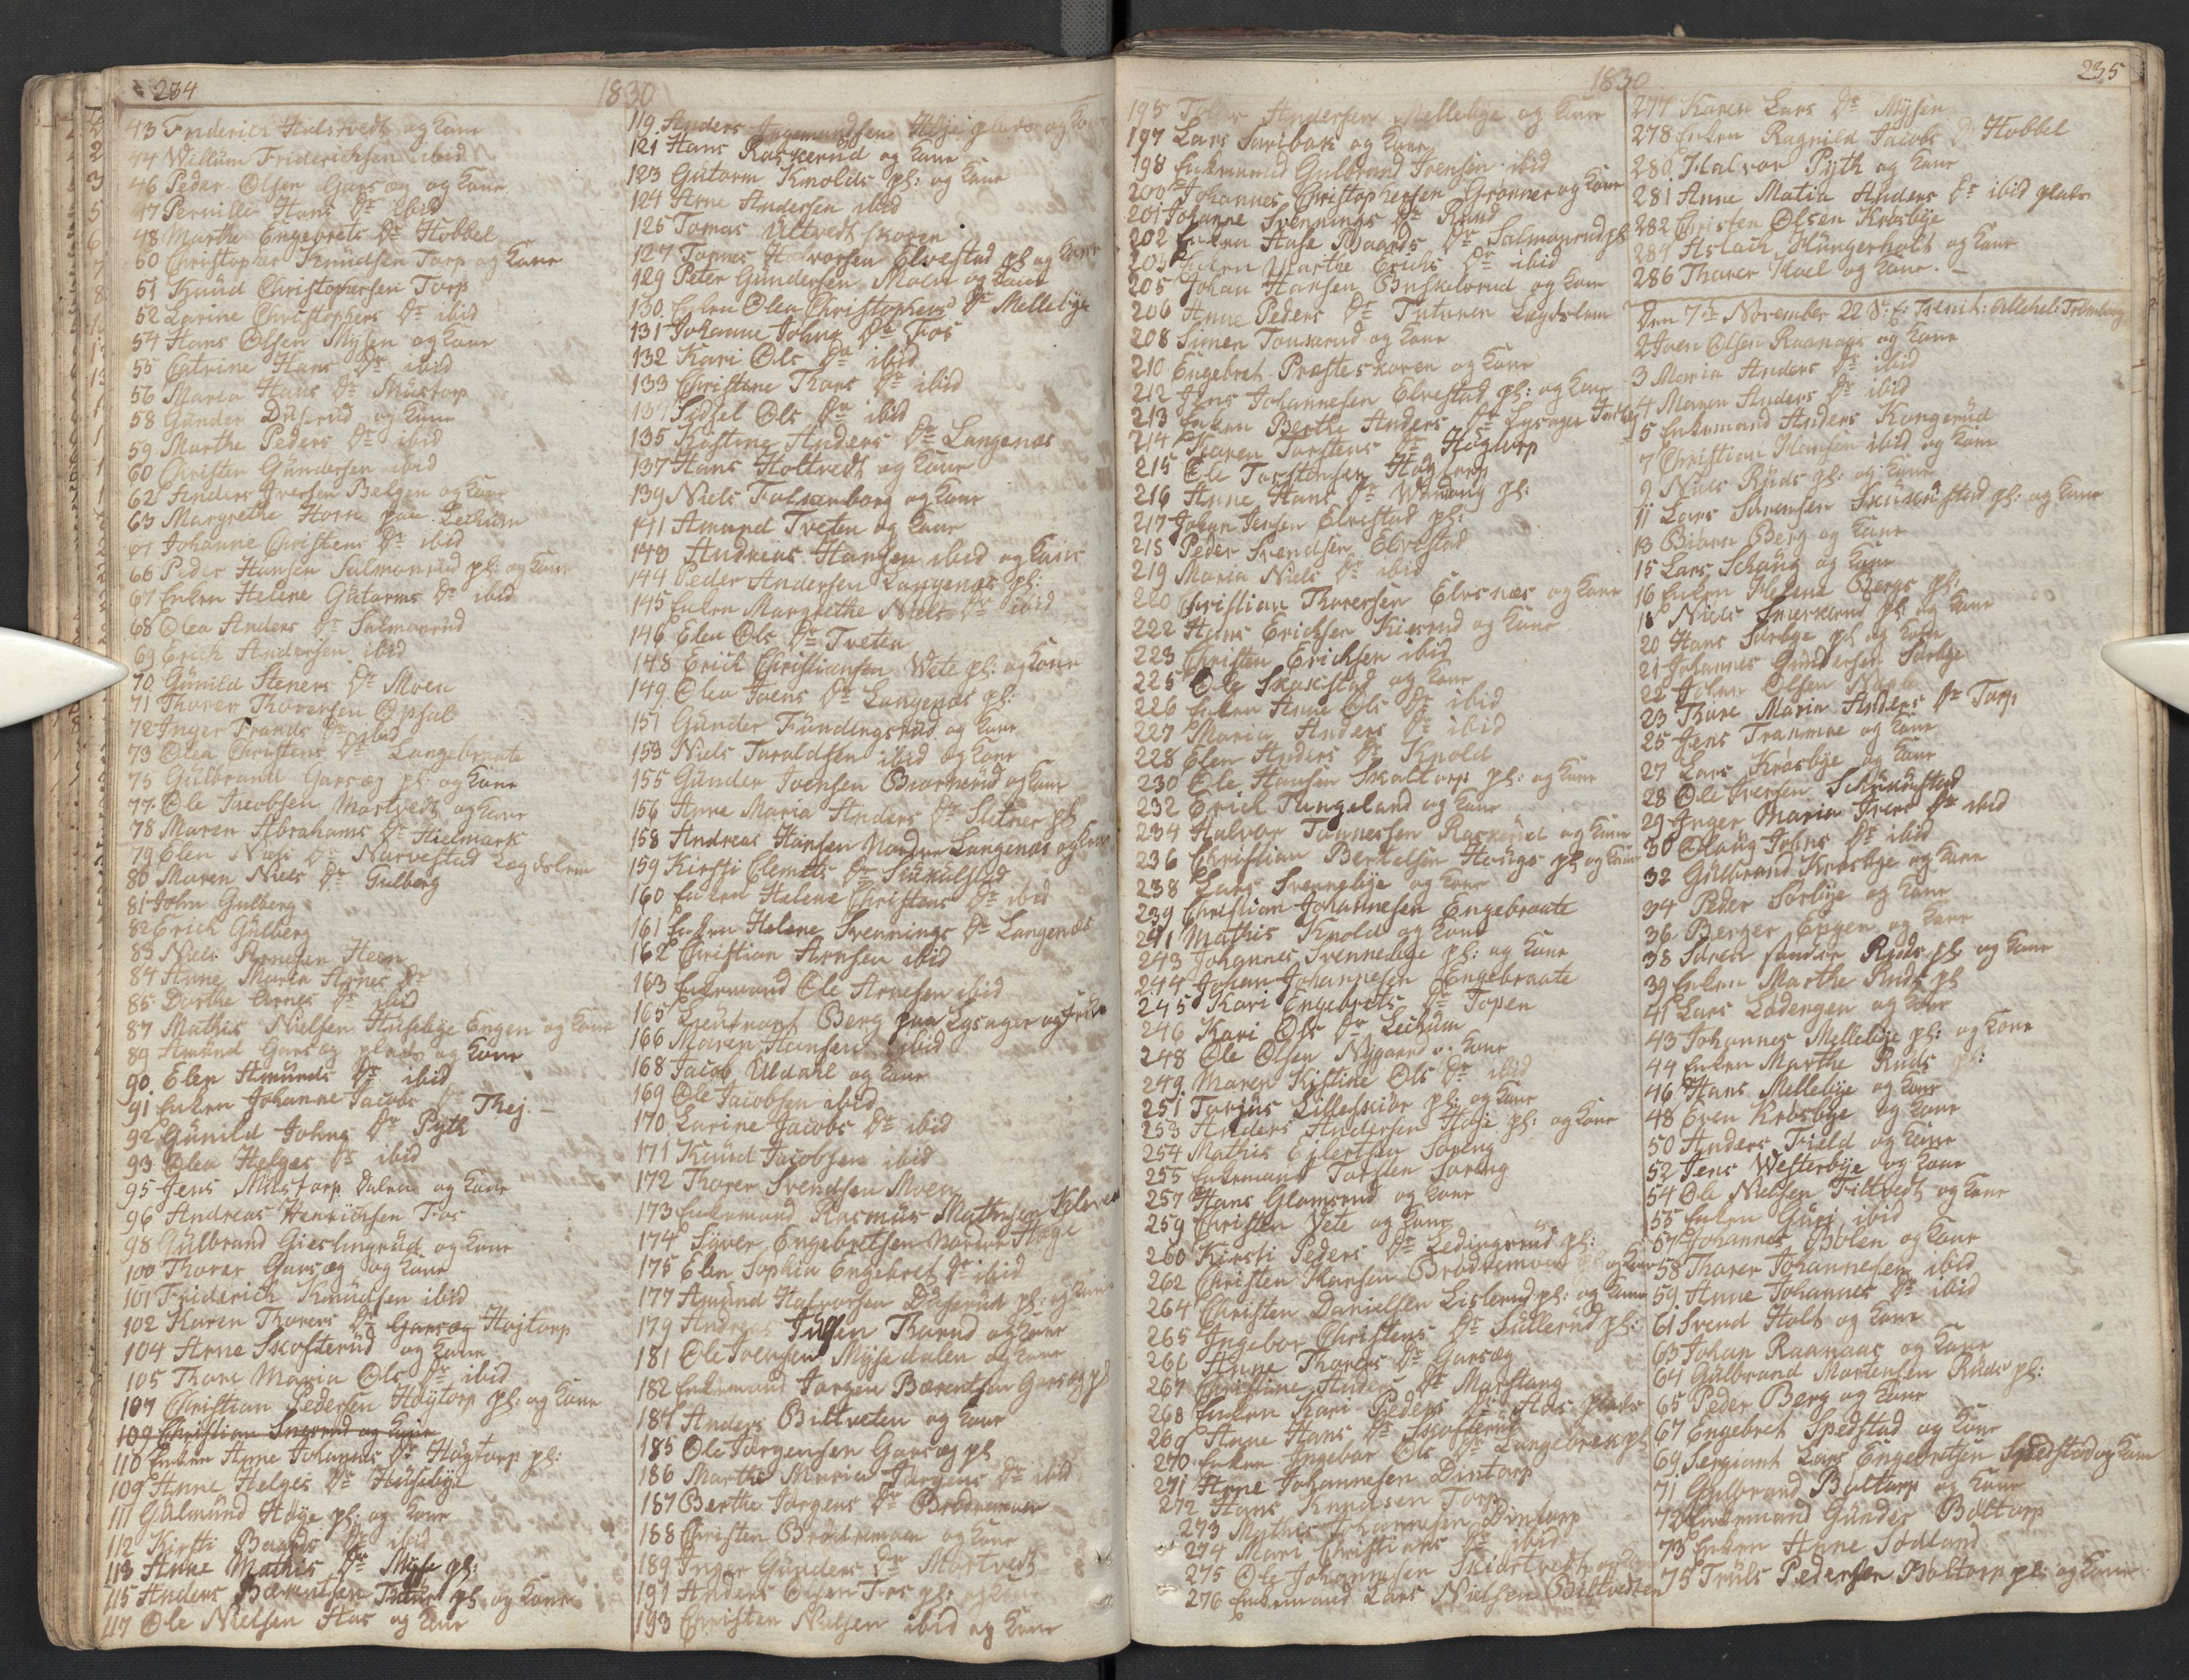 234
1830
43 Friderich Halstvedt og Kone
44 Willum Friderichsen ibid
46 Peder Olsen Garsæg og Kone
47 Pernille Hans Dr ibid
48 Marthe Engebrets Dr Hobbel
50 Christopher Knudsen Torp og Kone
51 Knud Christophersen Torp
52 Larine Christophers Dr ibid
54 Hans Olsen Mysen og Kone
55 Catrine Hans Dr ibid
56 Maria Hans Dr Mustorp
58 Gunder Duserud og Kone
59 Marthe Peders Dr ibid
60 Christen Gundersen ibid
62 Anders Iversen Belgen og Kone
63 Margrethe Horn paa Leikum
64 Johanne Christens Dr ibid
66 Peder Hansen Salmonrud pl: og Kone
67 Enken Helene Gutorms Dr ibid
68 Olea Anders Dr Salmonrud
69 Erich Andersen ibid
70 Gunild Steners Dr Moen
71 Thorer Thorersen Opsal
72 Inger Frands Dr ibid
73 Olea Christens Dr Langebraate
75 Gulbrand Garsæg pl og Kone
77 Ole Jacobsen Mortvedt og Kone
78 Maren Abrahams Dr Hielmark
79 Elen Niels Dr Narvestad Lægdslem
80 Maren Niels Dr Gulberg
81 John Gulberg
82 Erich Gulberg
83 Niels Arnesen Heen
84 Anne Maren Arnes Dr
85 Dorthe Arnes Dr ibid
87 Mathis Nielsen Husebye Engen og Kone
89 Amund Garsæg plads og Kone
90 Elen Amunds Dr ibid
91 Enken Johanne Jacobs Dr Thej. –
92 Gunild Johns Dr Pyth
93 Olea Helges Dr ibid
95 Jens Mustorp Dalen og Kone
96 Andreas Henrichsen Fos
98 Gulbrand Gieslingrud og Kone
100 Thorer Garsæg og Kone
101 Friderich Knudsen ibid
102 Karen Thorers Dr Garsæg Højtorp
104 Arne Skofterud og Kone
105 Thore Maria Ols Dr ibid
107 Christian Pedersen Høytorp pl: og Kone
109 Christian Sneerud og Kone
110 Enken Anne Johannes Dr Høgtorp pl:
109 Anne Helges Dr Husebye
111 Gulmund Høye pl: og Kone
112 Kirsti Baards Dr ibid
113 Anne Mathis Dr Myse pl:
115 Anders Bærentsen pl og Kone
117 Ole Nielsen Has og Kone
119 Anders Ingemundsen Høje plads og Kone
121 Hans Raskerud og Kone
123 Gutorm Knolds pl: og Kone
124 Arne Andersen ibid
126 Tomas Ultvedt skoven
127 Tannes Halvorsen Elvestad pl og Kone
129 Peter Gundersen Moen og Kone
130 Enken Olea Christophers Dr Mellebye
131 Johanne Johns Dr Fos
132 Kari Ols Dr ibid
133 Christine Thors Dr ibid
134 Sidsel Ols Dr ibid
135 Kistine Anders Dr Langenæs
137 Hans Holtvedt og Kone
139 Niels Falkenborg og Kone
141 Amund Tveten og Kone
143 Andreas Hansen ibid og Kone
144 Peder Andersen Langenæs pl:
145 Enken Margrethe Niels Dr ibid
146 Elen Ols Dr Tveten
148 Erich Christiansen Wete pl: og Kone
149 Olea Joens Dr Langenæs pl:
151 Gunder Fundingsrud og Kone
153 Niels Taraldsen ibid og Kone
155 Gunder Joensen Biørnerud og Kone
156 Anne Maria Anders Dr Slitner pl
158 Andreas Hansen Nordre Langenæs og Kone
159 Kirsti Clemets Dr Skukulstad
160 Enken Helene Christens Dr ibid
161 Enken Helene Svennings Dr Langenæs
162 Christian Arnsen ibid
163 Enkemand Ole Arnesen ibid
165 Lieutnant Berg paa Lysager og Frue
166 Maren Hansen ibid
168 Jacob Uldahl og Kone
169 Ole Jacobsen ibid
170 Larine Jacobs Dr ibid
171 Knud Jacobsen ibid
172 Thorer Svendsen Moen
173 Enkemand Rasmus Mathisen
174 Syver Engebretsen Nordre Høge
175 Elen Sophia Engebret Dr ibid
177 Amund Halvorsen Duserud pl: og Kone
179 Andreas Thorud og Kone
181 Ole Joensen Mysedalen og Kone
182 Enkemand Jørgen Bærentsen Garsæg pl
184 Anders Biltveten og Kone
185 Ole Jørgensen Garsæg pl
186 Marthe Maria Jørgens Dr ibid
187 Berthe Jørgens Dr Brødremoen
188 Christen Brødremoen og Kone
189 Inger Gunders Dr Mortvedt
191 Anders Olsen Fos pl: og Kone
193 Christen Nielsen ibid og Kone
1830
235
195 Toller Andersen Mellebye og Kone
197 Lars Saxibak og Kone
198 Enkemand Gulbrand Joensen ibid
200 Johannes Christophersen Grønnes og Kone
201 Johanne Svennings Dr Rund
202 Enken Aase Baards Dr Salmonrud pl
204 Enken Marthe Erichs Dr ibid
205 Johan Hansen Buskelsrud og Kone
206 Anne Peders Dr Tuturen Lægdslem
208 Simen Tonsarud og Kone
210 Engebret Præsteskoven og Kone
212 Jens Johannesen Elvestad pl: og Kone
213 Enken Berthe Anders Dr Lysager
214 Karen Torstens Dr Høgtorp
215 Ole Torstensen Høgtorp
216 Anne Hans Dr pl:
217 Johan Jensen Elvestad pl:
218 Peder Svendsen Elvestad
219 Maria Niels Dr ibid
220 Christian Thorersen Elvenæs og Kone
222 Hans Erichsen Kiserud og Kone
223 Christen Erichsen ibid
225 Ole Skakstad og Kone
226 Enken Anne Ols Dr ibid
227 Maria Anders Dr ibid
228 Elen Anders Dr Knold
230 Ole Hansen Skoltorp pl: og Kone
232 Erich Tungeland og Kone
234 Halvor Tannessen Raskerud og Kone
236 Christian Bertelsen Haugs pl og Kone
238 Lars Svennebye og Kone
239 Christian Johannesen Engebraate
241 Mathis Knold og Kone
243 Johannes Svennebye pl: og Kone
244 Johan Johannesen Engebraate
245 Kari Engebrets Dr Topen
246 Kari Ols Dr Leikum
248 Ole Olsen Nygaard o. Kone
249 Maren Kistine Ols Dr ibid
251 Torjus Lilleskiør pl: og Kone
253 Anders Andersen Høje pl: og Kone
254 Mathis Ejlertsen Søreng
255 Enkemand Torsten Søreng
257 Hans Glomsrud og Kone
259 Christen Vete og Kone
260 Kirsti Peders Dr Ledingsrud pl:
262 Christen Hansen Brødremoen og Kone
264 Christen Danielsen Lislerud pl: og Kone
265 Ingebor Christens Dr Sullerud pl:
266 Anne Thorers Dr Garsæg
267 Christine Anders Dr Morstang
268 Enken Kari Peders Dr Aas plads
269 Anne Hans Dr Skofterud
270 Enken Ingebor Ols Dr Langebrek pl
271 Arne Johannesen Dintorp
272 Hans Knudsen Torp
273 Mathis Johannesen Dintorp
274 Mari Christians Dr ibid
275 Ole Johannesen Skiortvedt og Kone
276 Enkemand Lars Nielsen Biltvedten
277 Karen Lars Dr Mysen
278 Enken Ragnild Jacobs Dr Hobbel
280 Halvor Pyth og Kone
281 Anne Matia Anders Dr ibid plads
282 Christen Olsen Krosbye
284 Aslach Hungerholt og Kone
286 Thorer Kael og Kone. –
Den 7de November 22 S: E: Trenit: Allehel: Trømborg
2 Joen Olsen Raanaas og Kone
3 Maria Anders Dr ibid
4 Maren Anders Dr ibid
5 Enkemand Anders Kongerud
7 Christian Hansen ibid og Kone
9 Niels Ruds pl: og Kone
11 Lars Sørensen Skukulstad pl: og Kone
13 Biørn Berg og Kone
15 Lars Schaug og Kone
16 Enken Helene Bergs pl:
18 Niels Snerkerud pl: og Kone
20 Hans Sørbye pl og Kone
21 Johannes Gundersen Sørbye
22 Johan Olsen
23 Thore Maria Anders Dr Torp
25 Jens Tranmae og Kone
27 Lars Krosbye og Kone
28 Ole Iversen Schukulstad
29 Inger Maria Ivers Dr ibid
30 Olaug Johns Dr ibid
32 Gulbrand Krosbye og Kone
34 Peder Sørbye og Kone
36 Berger Engen og Kone
38 Søren Sandvir Ruds pl og Kone
39 Enken Marthe Ruds pl
41 Lars Lødengen og Kone
43 Johannes Mellebye pl: og Kone
44 Enken Marthe Ruds pl:
46 Hans Mellebye og Kone
48 Even Krosbye og Kone
50 Anders Field og Kone
52 Jens Westerbye og Kone
54 Ole Nielsen Filtvedt og Kone
55 Enken Guri ibid
57 Johannes Bolen og Kone
58 Thorer Johannesen ibid
59 Anne Johannes Dr ibid
61 Svend Holt og Kone
63 Johan Raanaas og Kone
64 Gulbrand Mortensen Ruds pl:
65 Peder Berg og Kone
67 Engebret Spedstad og Kone
69 Sergiant Lars Engebretsen Spedstad og Kone
71 Gulbrand Boltorp og Kone
72 Enkemand Gunder Boltorp
73 Enken Anne Sødland
75 Truls Pedersen Boltorp pl: og Kone